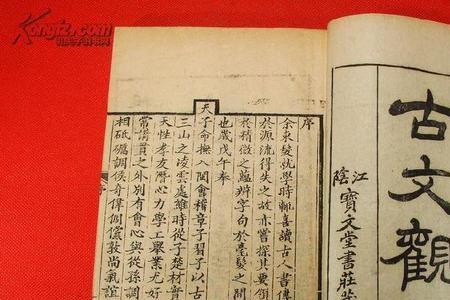 Kongfz.com
孔夫子旧书网
古文觀
江陰寶文堂書莊
序
余束髮就學時輒喜讀古人書傳
於源流得失之故亦嘗探其要
於精微之蘊辨字句於毫髮之間
也歲戊午奉
天子命撫八閩會稽章子習子以古
三山之凌雲處維時從子楚材實
天性孝友潛心力學工舉業尤好
常講貫之外別有會心與從孫調
相砥礪調侯奇偉倜儻敦尚氣誼